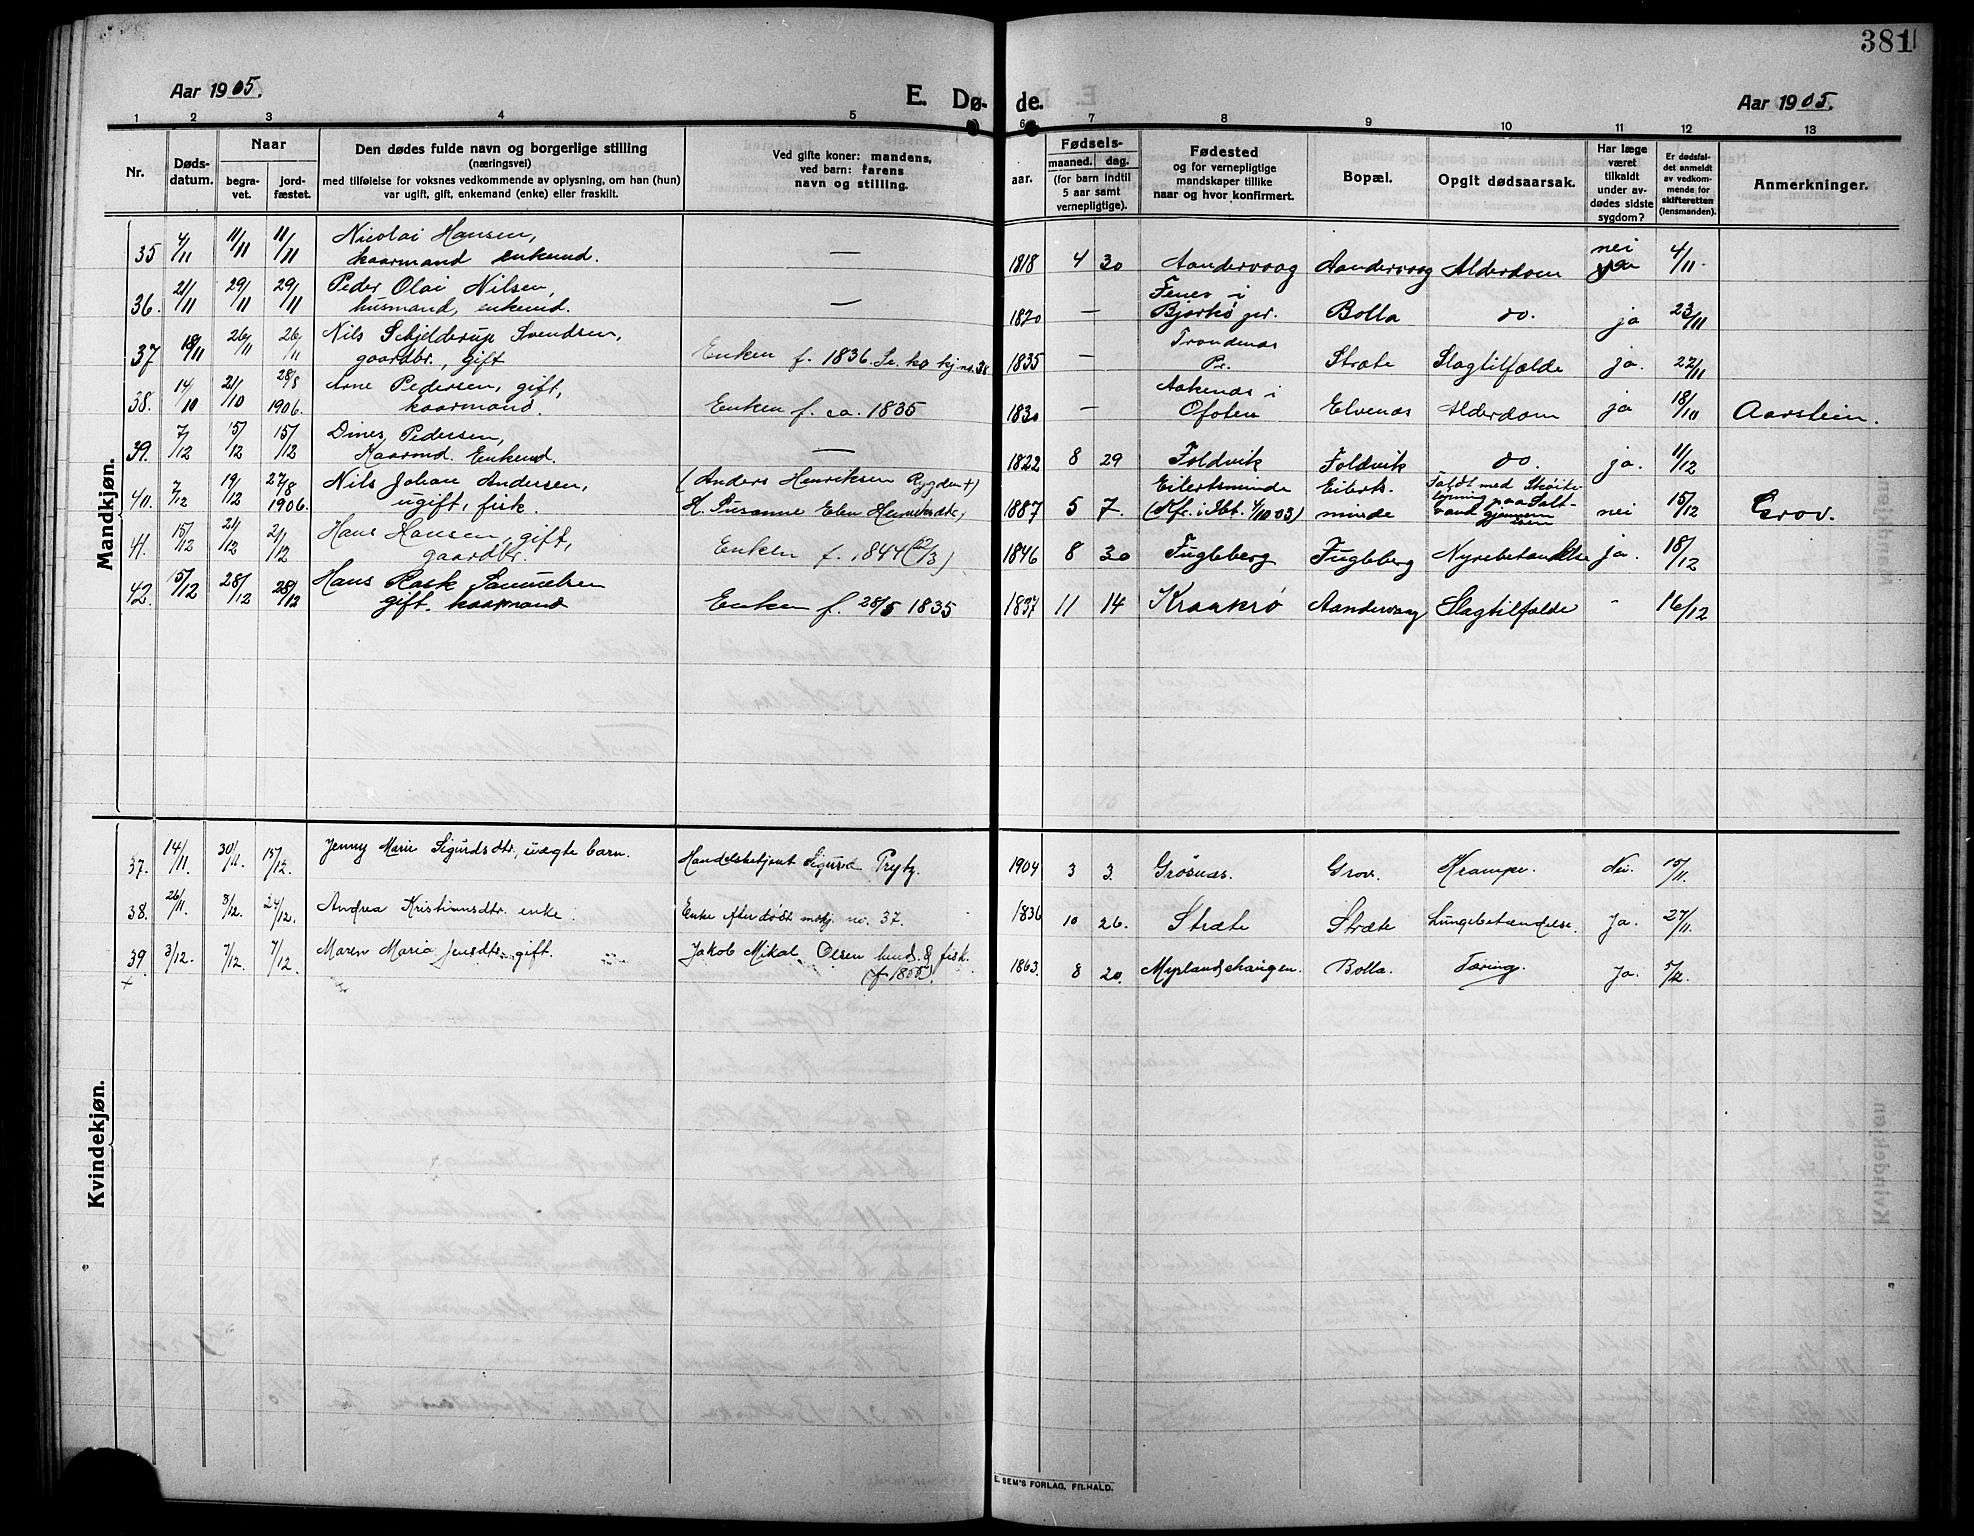 381
Aar 1905.
E. Dø-
de.
Aar 1905.
1 2 3 4 5 6 7 8 9 10 11 12 13
Nr.
Døds-
datum.
Naar
begra-
vet.
jord-
fæstet.
Den dødes fulde navn og borgerlige stilling
(næringsvei)
med tilføielse for voksnes vedkommende av oplysning, om han (hun)
var ugift, gift, enkemand (enke) eller fraskilt.
Ved gifte koner: mandens,
ved barn: farens
navn og stilling.
aar.
Fødsels-
maaned. dag.
(for barn indtil
5 aar samt
vernepligtige).
Fødested
og for vernepligtige
mandskaper tillike
naar og hvor konfirmert.
Bopæl.
Opgit dødsaarsak.
Har læge
været
tilkaldt
under av-
dødes sidste
sygdom?
Er dødsfal-
det anmeldt
av vedkom-
mende for
skifteretten
(lensmanden).
Anmerkninger.
Mandkjøn.
35 4/11 11/11 11/11 Nicolai Hansen,
kaarmand enkemd. — 1818 4 30 Aandervaag Aandervaag Alderdom nei 4/11.
36. 21/11 29/11 29/11 Peder Olai Nilsen,
husmand, enkemd. — 1820 — Fenes i
Bjarkö pr. Bolla do. ja 23/11
37 18/11 26/11 26/11 Nils Schjelderup Svendsen,
gaardbr., gift Enken f. 1836. Se kv kj no. 38 1835 — Trondenæs
Pr. Stræte Slagtilfælde ja. 22/11
38. 14/10 21/10 28/8
1906. Arne Pedersen, gift,
kaarmand. Enken f. ca. 1835 1830 — Aakenæs i
Ofoten Elvenæs Alderdom ja 18/10 Aarstein.
39. 7/12 15/12 15/12 Dines Pedersen,
Kaarmd. Enkemd. — 1822 8 29 Foldvik Foldvik do. ja. 11/12
40. 7/12 19/12 27/8
1906. Nils Johan Andersen,
ugift, fisk. (Anders Henriksen
M. Susanne Elen 1887 5 7. Eilertsminde
(Kfr. i Ibt. 1/10 03) Eilerts-
minde Faldt med Sköite
paa Salt-
vand gjennem
isen nei 15/12 Grov.
41. 15/12 21/12 21/12 Hans Hansen, gift,
gaardbr. Enken f. 1844 (12/3) 1846 8 30 Fugleberg Fugleberg Nyrebetændelse ja. 18/12
42. 15/12 28/12 28/12 Hans Rask Samuelsen
gift. kaarmand Enken f. 28/5 1835 1837 11 14 Kraakrø Aandervaag Slagtilfælde - 16/12
Kvindekjøn.
37. 14/11. 30/11. 15/12. Jenny Marie Sigurdsdtr., uægte barn. Handelsbetjent Sigurd Prytz. 1904 3 3. Grøsnæs. Grov. Krampe. Nei. 15/11.
38. 26/11. 3/12. 24/12. Andrea Kristiansdtr. enke. Enke efter dödt mkj. no. 37. 1836 10 26. Stræte Stræte Lungebetændelse. Ja. 27/11.
39 3/12. 7/12. 7/12. Maren Maria Jensdtr. gift. Jakob Mikal Olsen husd. & fisk.
(f 1855). 1863. 8 20. Myrlandshaugen. Bolla. Tæring. Ja. 5/12.
+
E. SEM'S FORLAG, FR.HALD.